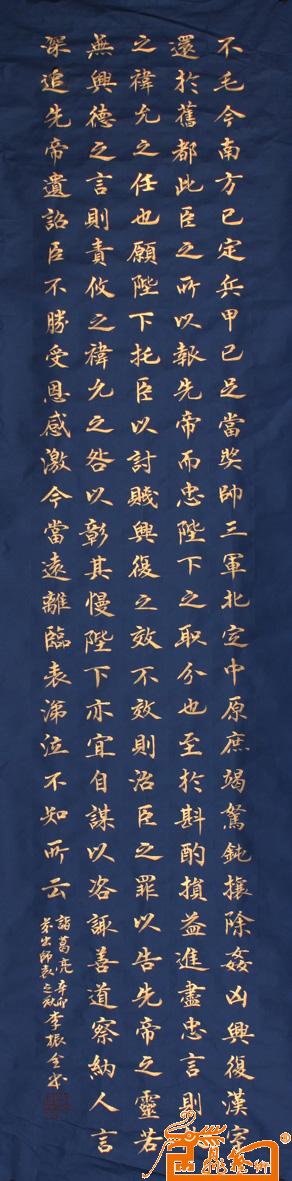 不毛今南方已定兵甲已足當奖師三軍北定中原庶竭駑鈍攘除姦凶興復漢室
還於舊都此臣之所以報先帝而忠陛下之职分也至於斟酌損益進盡忠言則
之褘允之任也願陛下托臣以討賊興復之效不效則治臣之罪以告先帝之靈若
無興德之言則責攸之褘允之咎以彰其慢陛下亦宜自謀以咨諏善道察納人言
深追先帝遺詔臣不勝受恩感激今當遠離臨表涕泣不知所云
諸葛亮辛卯
出師表之秋李振